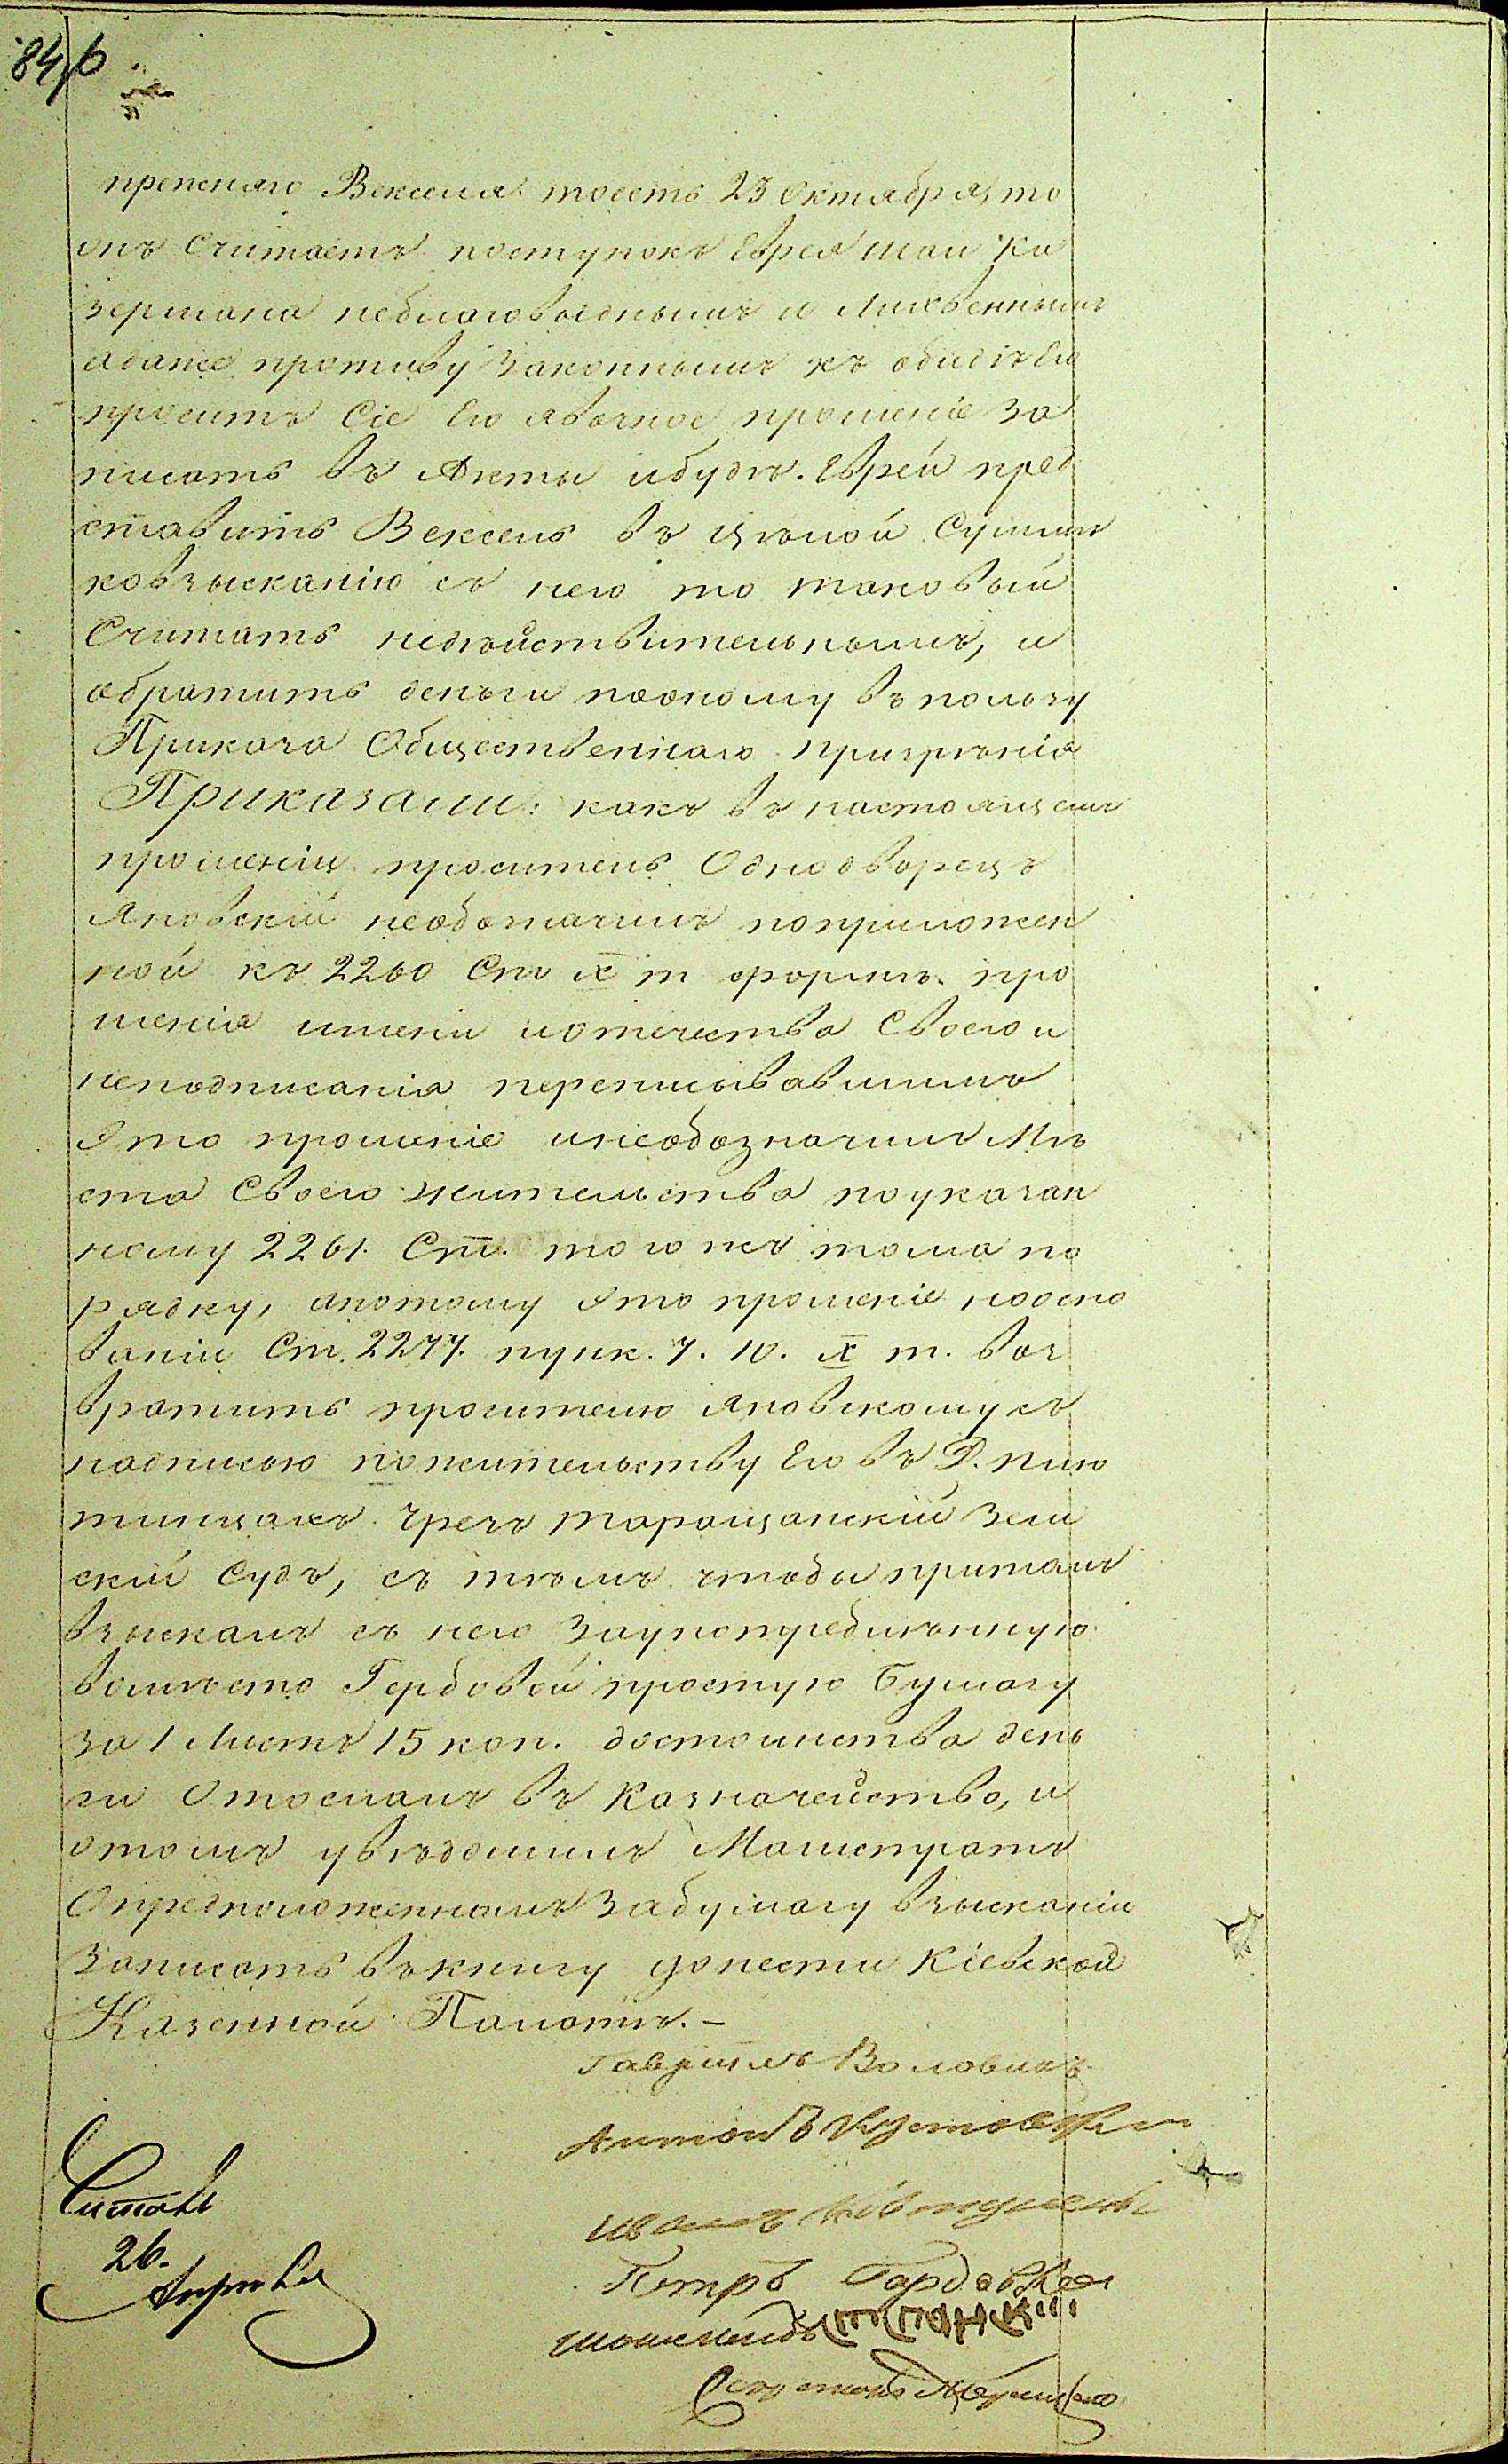 84
прежняго Векселя тоесть 23 Октября, то
онъ Считаетъ поступокъ Еврея Шаи Ка
зермана неблаговиднымъ и Лихвеннымъ
адаже противу Законнымъ къ обидѣ Его
проситъ Сіе Его явочное прошеніе За
писать въ Акты ибудѣ. Еврей пред
ставитъ Вексель въ цѣлой Суммѣ
ковзысканію съ него то таковый
Считать недѣйствительнымъ, и
обратить деньги поономy въ пользу
Приказа Общественнаго призрѣнія
Приказали: какъ въ настоящемъ
прошеніи проситель Однодворецъ
Яновскій необозначилъ поприложен
ной къ 2260 Ст х т формѣ. про
шенія имени иотечества Своего и
неподписанія переписывавшимъ
Это прошеніе инеобозначилъ Мѣ
ста Своего жительства поуказан
ному 2261. Ст. того жъ тома по
рядку, апотому Это прошеніе наосно
ваніи Ст. 2277. пунк. 7. 10. х т. воз
вратить просителю Яновскому съ
надписью пожительству Его въ Д.
чрезъ Таращанскій Зем
скій Судъ, съ тѣмъ чтобы притомъ
взыскалъ съ него Заупотребленную
вомѣсто Гербовой простую Бумагу
за 1 Листъ 15 коп. достоинства день
ги Отослалъ въ Казначейство, и
отомъ увѣдомилъ Магистратъ
Опредположенномъ Забумагу взысканіи
Записать въкнигу донести Кіевской
Казенной Палатѣ. –
Гавріилъ Воловикъ
Антонъ
Иванъ
Петръ
Читалъ
26.
Апрѣля
Секретарь